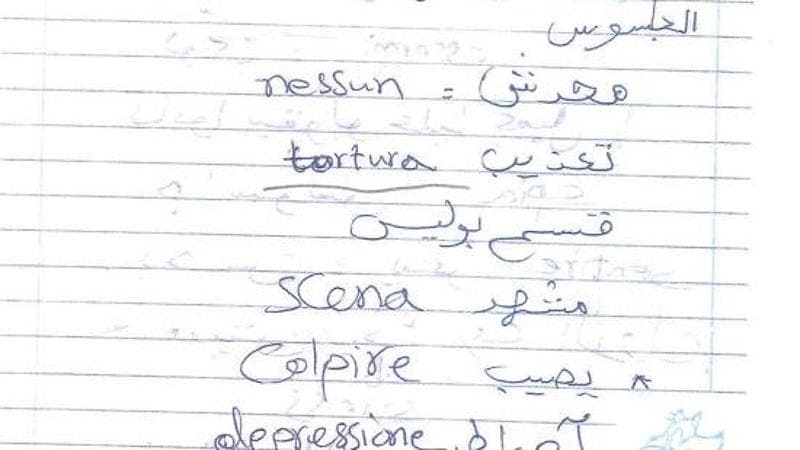 الجاسوس
محدش = nessun
تعذيب tortura
قسم بوليس
مشهد scena
* يصيب Colpire
depressione